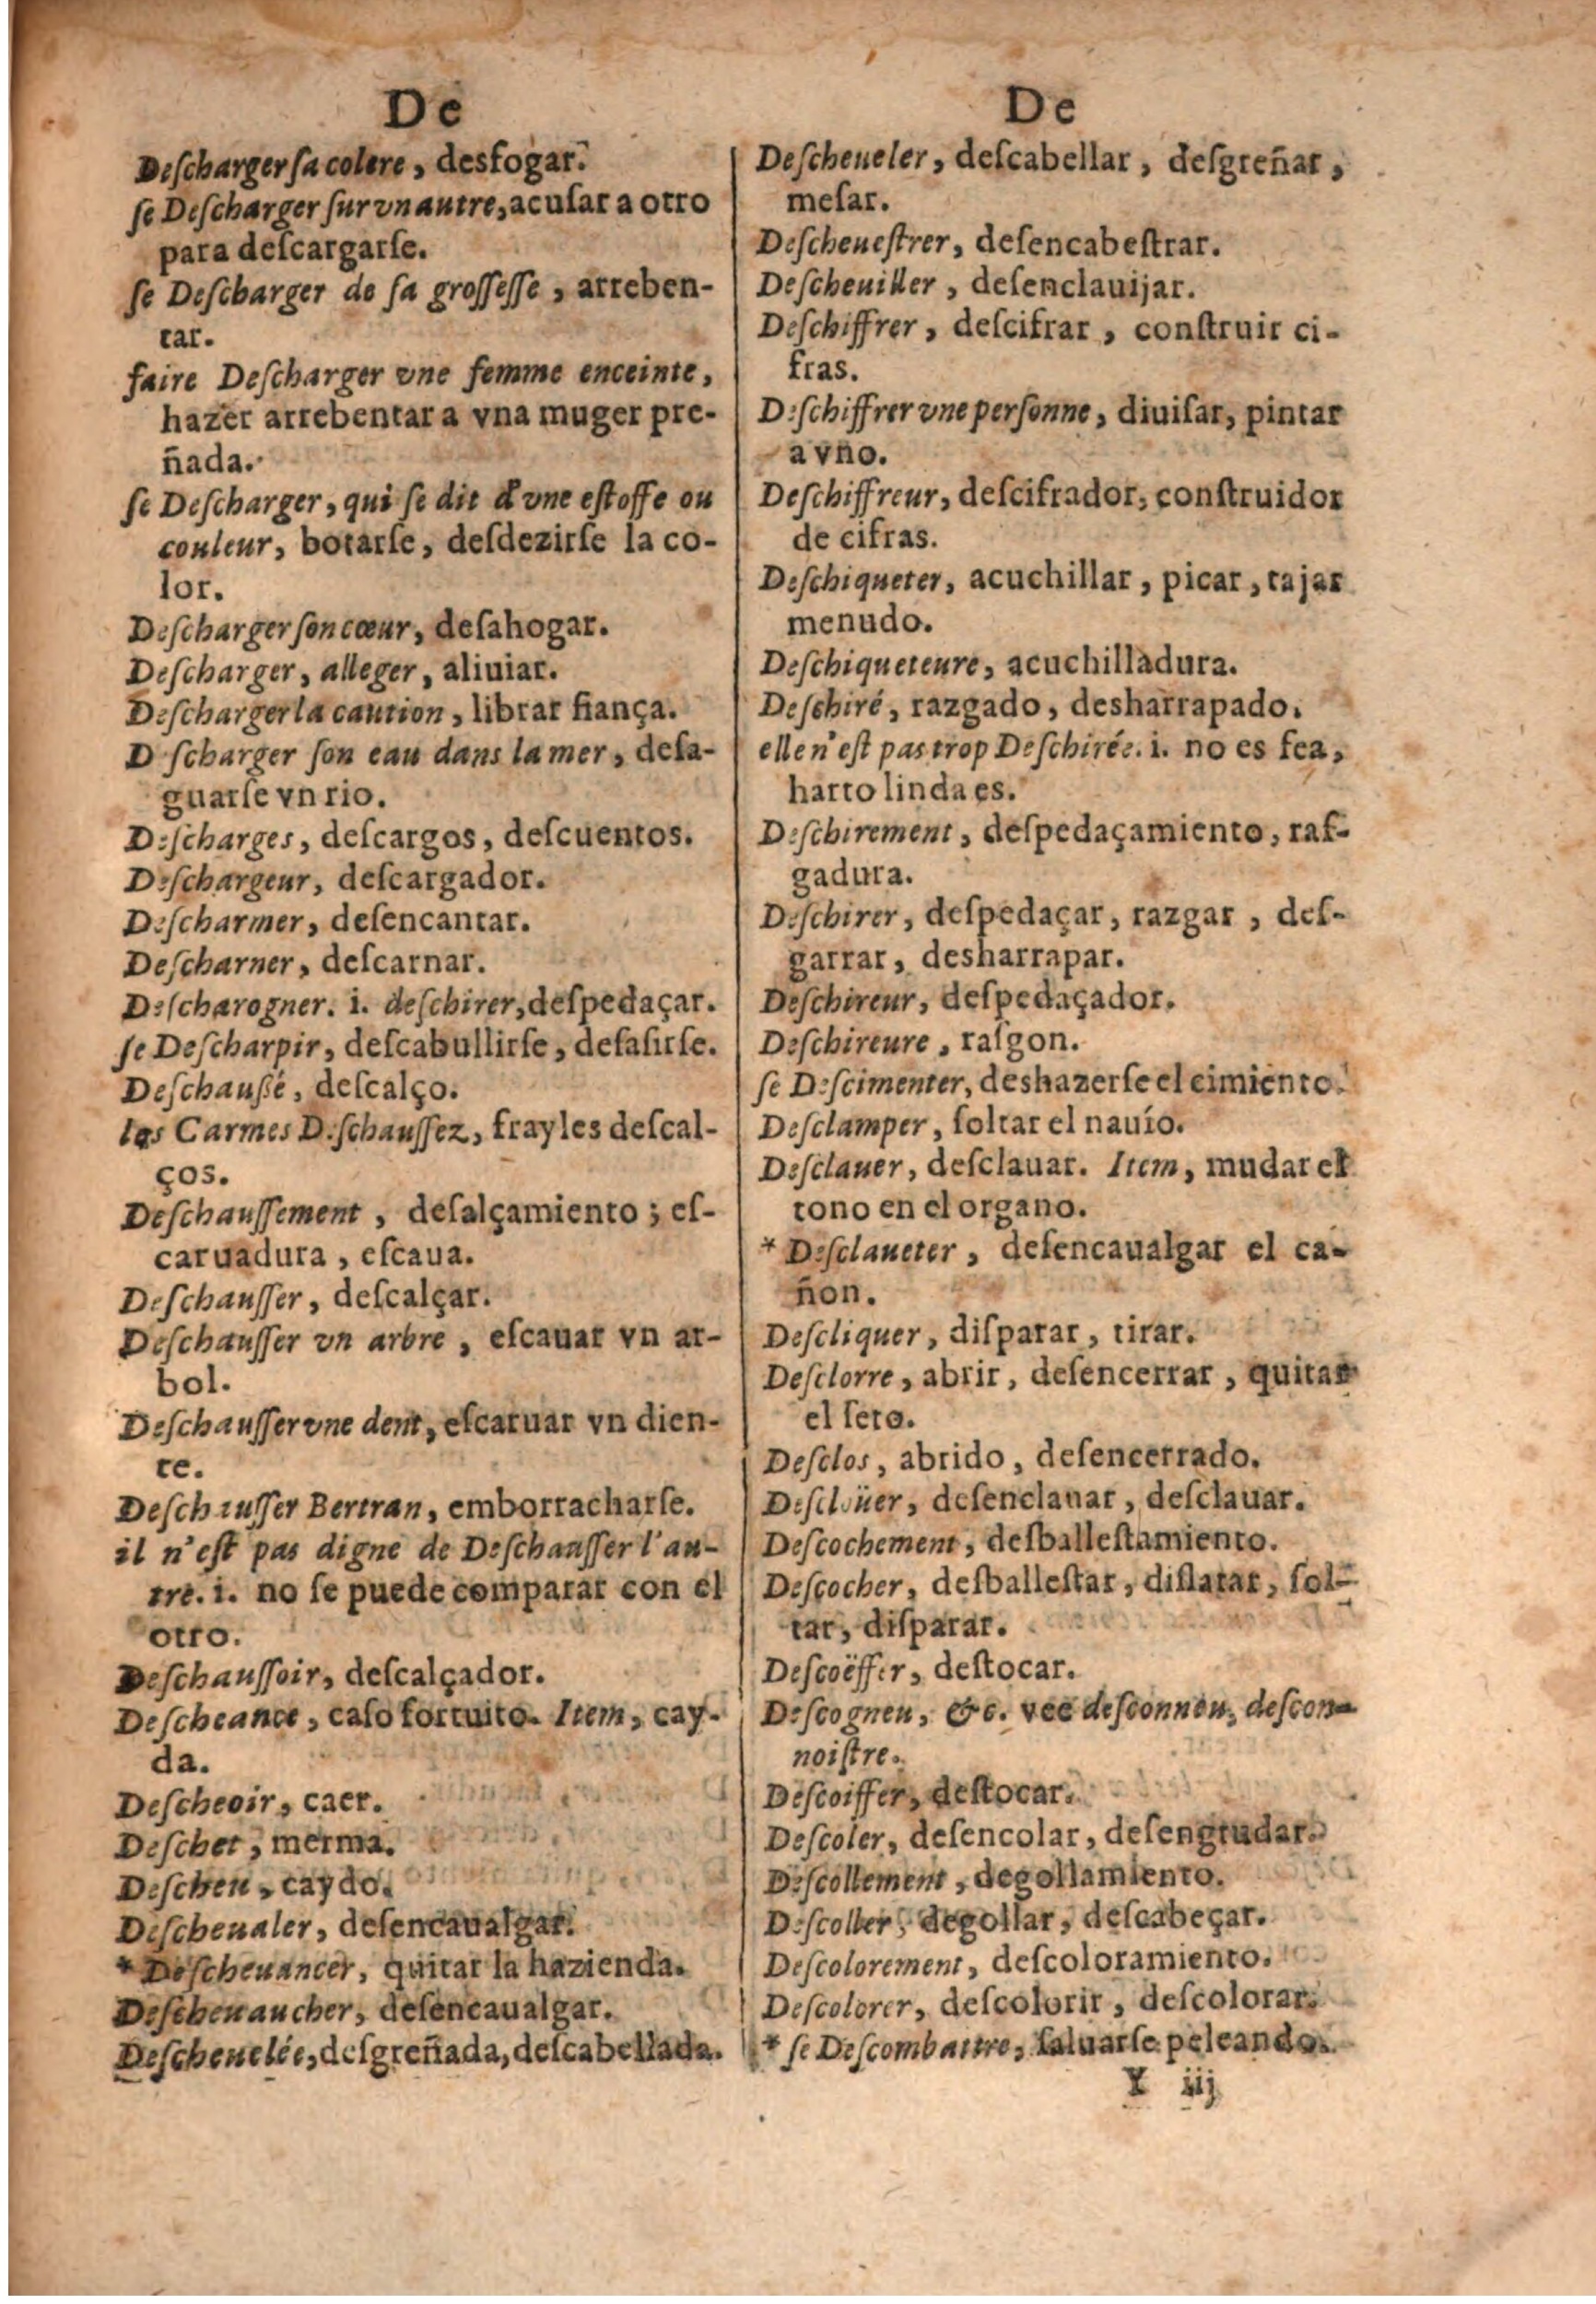 De
Deſcharger ſa colere, desfogar.
ſe Deſcharger ſur vn autre, acuſar a otro
para deſcargarſe.
ſe Deſcharger de ſa groſſeſſe, arreben-
tar.
faire Deſcharger vne femme enceinte,
hazer arrebentar a vna muger pre-
ñada.
ſe Deſcharger, qui ſe dit d'vne eſtoffe ou
couleur, botarſe, deſdezirſe la co-
lor.
Deſcharger ſon cœur, deſahogar.
Deſcharger, alleger, aliuiar.
Deſcharger la caution, librar fiança.
D ſcharger ſon eau dans la mer, deſa-
guarſe vn rio.
Deſcharges, deſcargos, deſcuentos.
Deſchargeur, deſcargador.
Deſcharmer, deſencantar.
Deſcharner, deſcarnar.
Deſcharogner. i. deſchirer, deſpedaçar.
ſe Deſcharpir, deſcabullirſe, deſaſirſe.
Deſchauſſé, deſcalço.
les Carmes Deſchauſſez, frayles deſcal-
ços.
Deſchauſſement, deſalçamiento; eſ-
caruadura, eſcaua.
Deſchauſſer, deſcalçar.
Deſchauſſer vn arbre, eſcauar vn ar-
bol.
Deſchauſſer vne dent, eſcaruar vn dien-
te.
Deſchauſſer Bertran, emborracharſe.
il n'eſt pas digne de Deſchauſſer l'au-
tre. i. no ſe puede comparar con el
otro.
Deſchauſſoir, deſcalçador.
Deſcheance, caſo fortuito. Item, cay-
da.
Deſcheoir, caer.
Deſchet, merma.
Deſcheu, caydo.
Deſcheualer, deſencaualgar.
* Deſcheuancer, quitar la hazienda.
Deſcheuaucher, deſencaualgar.
Deſcheuelée, deſgreñada, deſcabellada.
De
Deſcheueler, deſcabellar, deſgreñar,
meſar.
Deſcheueſtrer, deſencabeſtrar.
Deſcheuiller, deſenclauijar.
Deſchiffrer, deſcifrar, conſtruir ci-
fras.
Deſchiffrer vne perſonne, diuiſar, pintar
a vno.
Deſchiffreur, deſcifrador, conſtruidor
de cifras.
Deſchiqueter, acuchillar, picar, tajar
menudo.
Deſchiqueteure, acuchilladura.
Deſchiré, razgado, desharrapado.
elle n'eſt pas trop Deſchirée. i. no es fea,
harto linda es.
Deſchirement, deſpedaçamiento, raſ-
gadura.
Deſchirer, deſpedaçar, razgar, deſ-
garrar, desharrapar.
Deſchireur, deſpedaçador.
Deſchireure, raſgon.
ſe Deſcimenter, deshazerſe el cimiento.
Deſclamper, ſoltar el nauío.
Deſclauer, deſclauar. Item, mudar el
tono en el organo.
* Deſclaueter, deſencaualgar el ca-
ñon.
Deſcliquer, diſparar, tirar.
Deſclorre, abrir, deſencerrar, quitar
el ſeto.
Deſclos, abrido, deſencerrado.
Deſcloüer, deſenclauar, deſclauar.
Deſcochement, desballeſtamiento.
Deſcocher, desballeſtar, diſlatar, ſol-
tar, diſparar.
Deſcoëffer, deſtocar.
Deſcogneu, &c. vee deſconneu, deſcon-
noiſtre.
Deſcoiffer, deſtocar.
Deſcoler, deſencolar, deſengrudar.
Deſcollement, degollamiento.
Deſcoller, degollar, deſcabeçar.
Deſcolorement, deſcoloramiento.
Deſcolorer, deſcolorir, deſcolorar.
* ſe Deſcombattre, ſaluarſe peleando.
Y iij